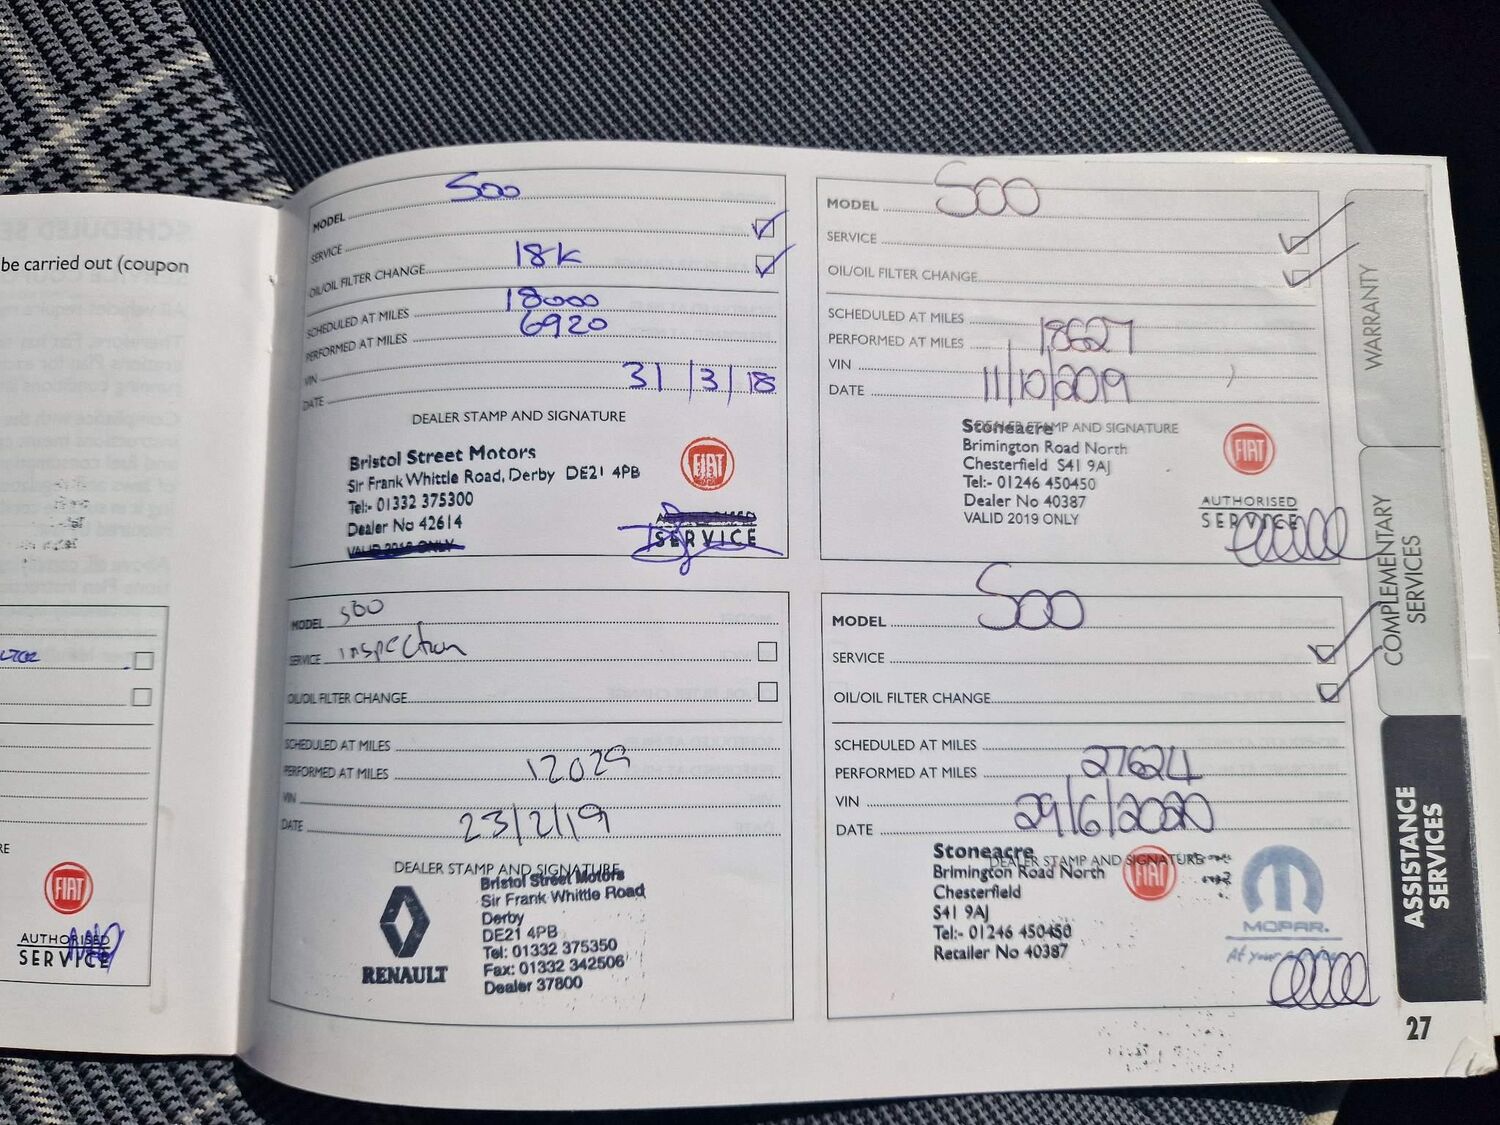 be carried out (coupon
AUTHORISED
SERVICE
FIAT
MODEL 500
SERVICE
OIL/OIL FILTER CHANGE 18K
SCHEDULED AT MILES 18000
PERFORMED AT MILES 6920
VIN
DATE 31/3/18
DEALER STAMP AND SIGNATURE
Bristol Street Motors
Sir Frank Whittle Road, Derby DE21 4PB
Tel:- 01332 375300
Dealer No 42614
VALID 2018 ONLY
FIAT
AUTHORISED
SERVICE
MODEL 500
SERVICE inspection
OIL/OIL FILTER CHANGE
SCHEDULED AT MILES
PERFORMED AT MILES 12029
VIN
DATE 23/2/19
DEALER STAMP AND SIGNATURE
RENAULT
Bristol Street Motors
Sir Frank Whittle Road
Derby
DE21 4PB
Tel: 01332 375350
Fax: 01332 342506
Dealer 37800
MODEL 500
SERVICE
OIL/OIL FILTER CHANGE
SCHEDULED AT MILES
PERFORMED AT MILES 18627
VIN
DATE 11/10/2019
DEALER STAMP AND SIGNATURE
Stoneacre
Brimington Road North
Chesterfield S41 9AJ
Tel:- 01246 450450
Dealer No 40387
VALID 2019 ONLY
FIAT
AUTHORISED
SERVICE
MODEL 500
SERVICE
OIL/OIL FILTER CHANGE
SCHEDULED AT MILES
PERFORMED AT MILES 27624
VIN
DATE 29/6/2020
DEALER STAMP AND SIGNATURE
Stoneacre
Brimington Road North
Chesterfield
S41 9AJ
Tel:- 01246 450450
Retailer No 40387
FIAT
MOPAR
At your
WARRANTY
COMPLEMENTARY
SERVICES
ASSISTANCE
SERVICES
27